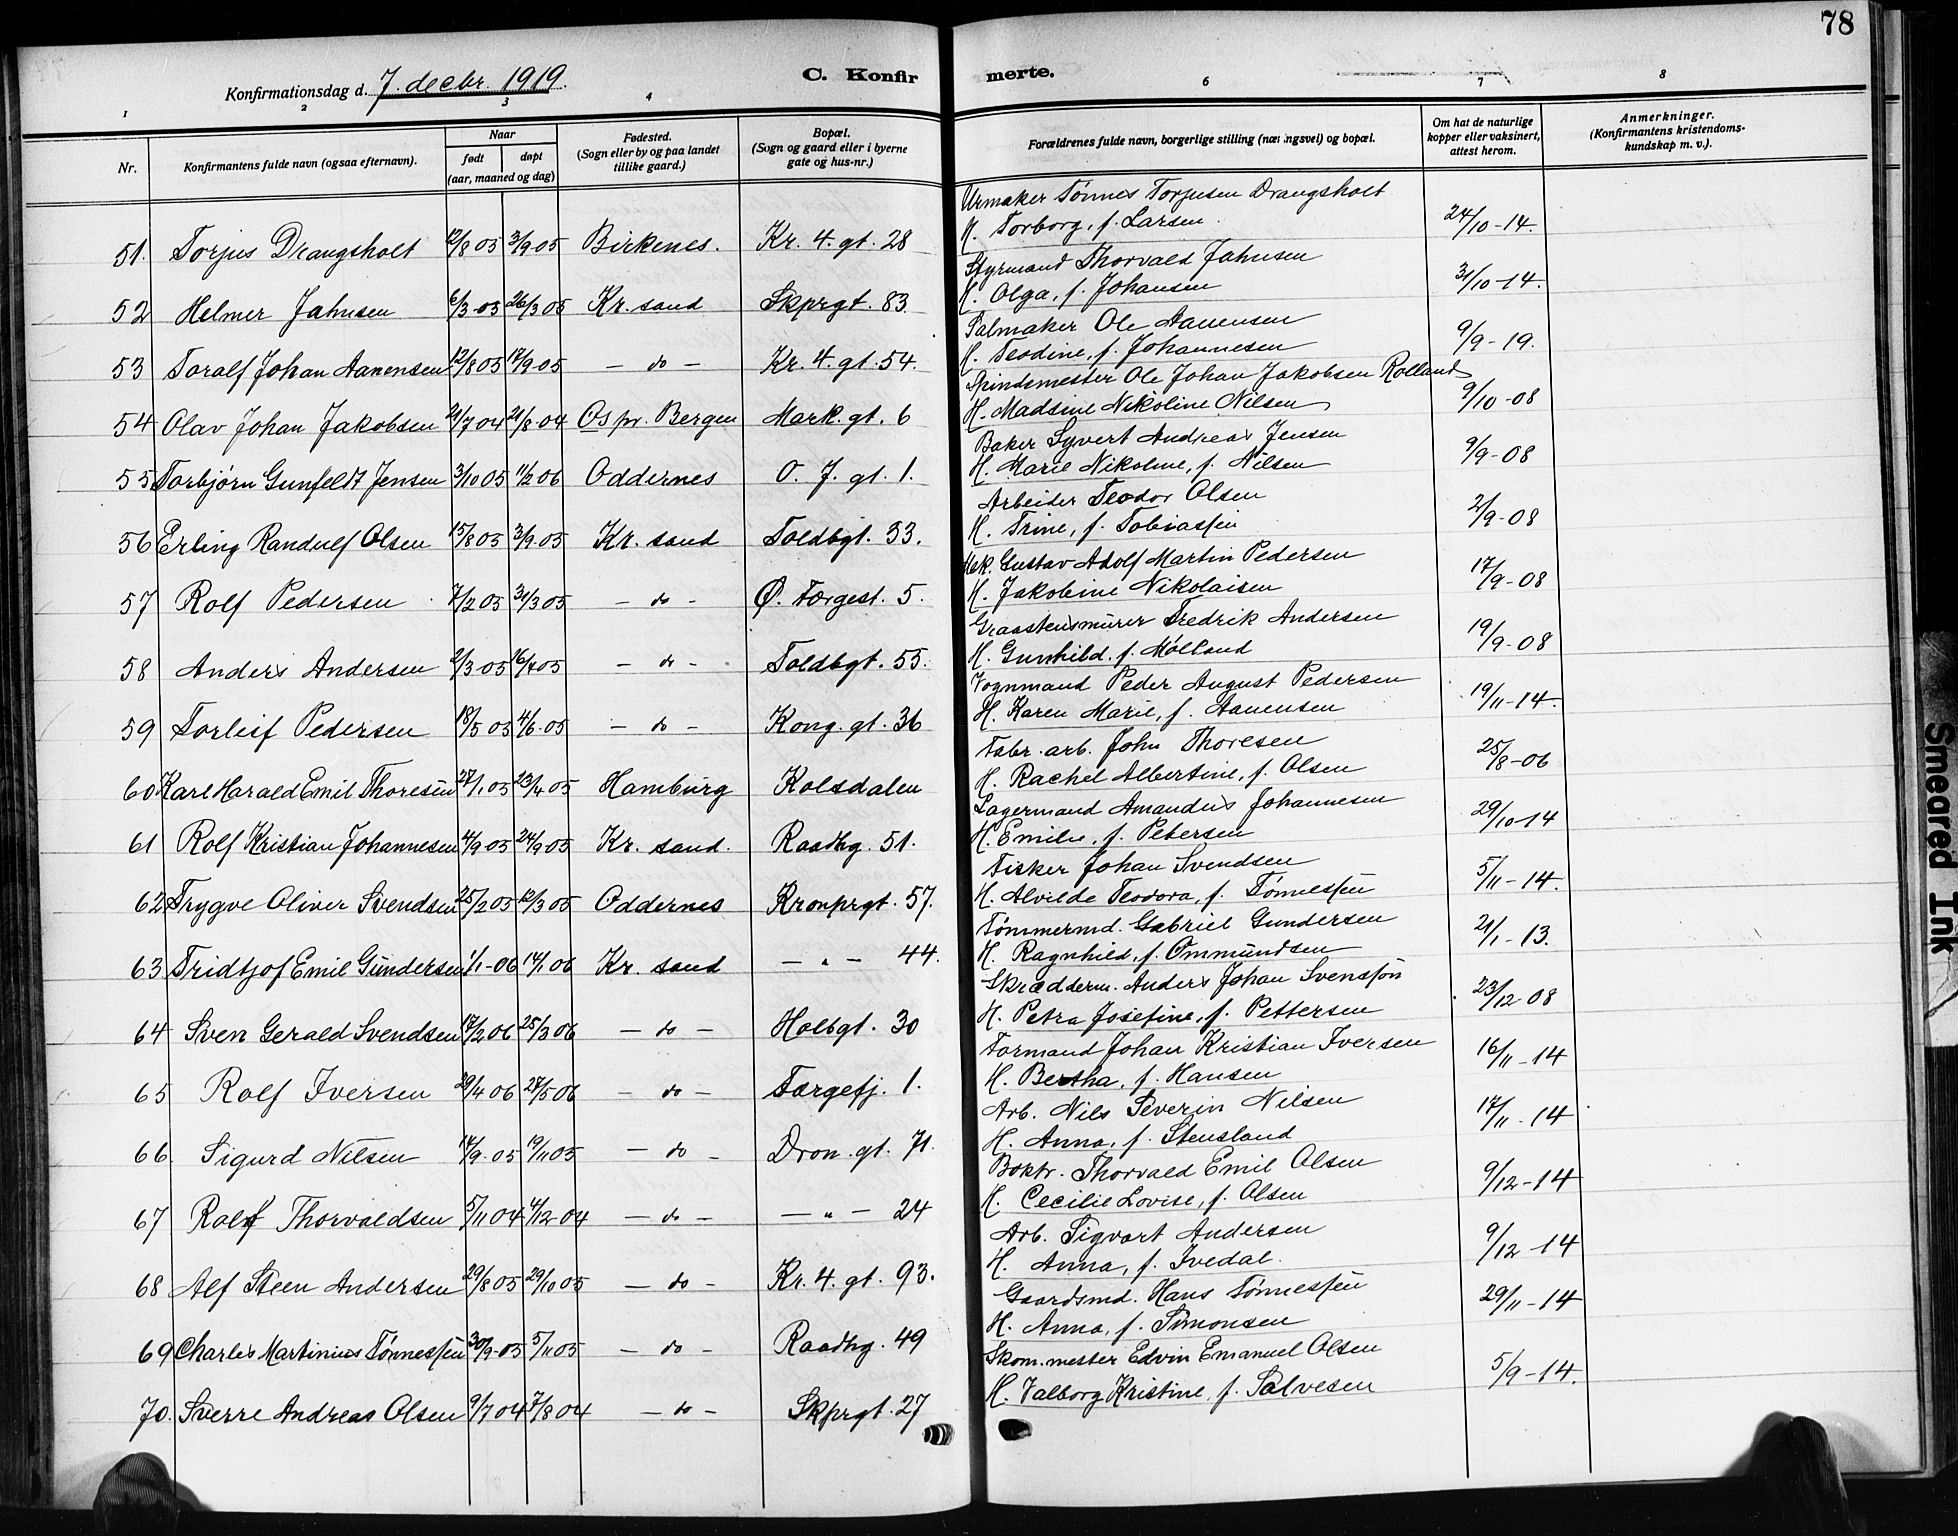 78
Konfirmationsdag d. 7. decbr. 1919.
C. Konfirmerte.
1 2 3 4 6 7 8
Nr.
Konfirmantens fulde navn (ogsaa efternavn).
Naar
født døpt
(aar, maaned og dag)
Fødested.
(Sogn eller by og paa landet
tillike gaard.)
Bopæl.
(Sogn og gaard eller i byerne
gate og hus-nr.)
Forældrenes fulde navn, borgerlige stilling (næringsvei) og bopæl.
Om hat de naturlige
kopper eller vaksinert,
attest herom.
Anmerkninger.
(Konfirmantens kristendoms-
kundskap m. v.).
Urmaker Tønnes Torjusen Drangsholt
51. Torjus Drangsholt 12/8 05 3/9 05 Birkenes. Kr. 4. gt. 28 H. Torborg, f. Larsen. 24/10-14.
Styrmand Thorvald Jahnsen
52 Helmer Jahnsen 6/3 05 26/3 05 Kr. sand Skprgt. 83 H. Olga, f. Johansen 31/10-14.
Salmaker Ole Aanensen
53 Toralf Johan Aanensen 12/8 05 17/9 05 - do - Kr. 4. gt. 54. H. Teodine, f. Johannesen 9/9-19.
Spindemester Ole Johan Jakobsen Rolland
54 Olav Johan Jakobsen 21/7 04 21/8 04 Os pr. Bergen Mark. gt. 6 H. Madsine Nikoline Nilsen 9/10-08
Baker Syvert Andreas Jensen
55 Torbjørn Gunfeldt Jensen 3/10 05 11/2 06 Oddernes O. J. gt. 1. H. Marie Nikoline, f. Nilsen 9/9-08
Arbeider Teodor Olsen
56 Erling Randulf Olsen 15/8 05 3/9 05 Kr. sand Toldbgt. 33. H. Trine, f. Tobiassen 2/9-08
Mek. Gustav Adolf Martin Pedersen
57 Rolf Pedersen 7/2 05 31/3 05 - do - Ø. Færgest. 5. H. Jakobine Nikolaisen 17/9-08
Graastensmurer Fredrik Andersen
58 Anders Andersen 2/3 05 16/4 05 - do - Toldbgt. 55. H. Gunhild. f. Mølland 19/9-08
Vognmand Peder August Pedersen
59 Torleif Pedersen 18/5 05 4/6 05 - do - Kong. gt. 36 H. Karen Marie, f. Aanensen 19/11-14.
Fabr. arb. John Thoresen
60 Karl Harald Emil Thoresen 27/1 05 23/4 05 Hamburg Kolsdalen H. Rachel Albertine, f. Olsen 25/8-06
Lagermand Amandus Johannesen
61 Rolf Kristian Johannesen 4/9 05 24/9 05 Kr. sand. Raadhg. 51. H. Emilie, f. Petersen 29/10-14
Fisker Johan Svendsen
62 Trygve Oliver Svendsen 25/2 05 12/3 05 Oddernes Kronprgt. 57. H. Alvilde Teodora, f. Tønnessen 5/11-14.
Tømmermd. Gabriel Gundersen
63 Fridtjof Emil Gundersen 1/1-06 14/1 06 Kr. sand - " - 44. H. Ragnhild, f. Ommundsen 21/1-13.
Skrædderm. Anders Johan Svensson
64 Sven Gerald Svendsen 17/2 06 25/3 06 - do - Holbgt. 30 H. Petra Josefine, f. Pettersen 23/12-08
Formand Johan Kristian Iversen
65 Rolf Iversen 29/4 06 27/5 06 - do - Færgefj. 1. H. Bertha, f. Hansen 16/11-14
Arb. Nils Severin Nilsen
66. Sigurd Nilsen 14/9 05 19/11 05 - do - Dron. gt. 71. H. Anna, f. Stensland 17/11-14
Boktr. Thorvald Emil Olsen
67 Ralf Thorvaldsen 5/11 04 4/12 04 - do - - " - 24 H. Cecilie Lovise, f. Olsen 9/12-14
Arb. Sigvart Andersen
68 Alf Steen Andersen 29/8 05 29/10 05 - do - Kr. 4. gt. 93. H. Anna, f. Ivedal. 9/12-14
Gaardsmd. Hans Tønnessen
69 Charles Martinius Tønnessen 30/9 05 5/11 05 - do - Raadhg. 49 H. Anna, f. Simonsen 29/11-14
Skom. mester Edvin Emanuel Olsen
70. Sverre Andreas Olsen 9/7 04 7/8 04 - do - Skprgt. 27 H. Valborg Kristine, f. Salvesen 5/9-14.
Smeared Ink